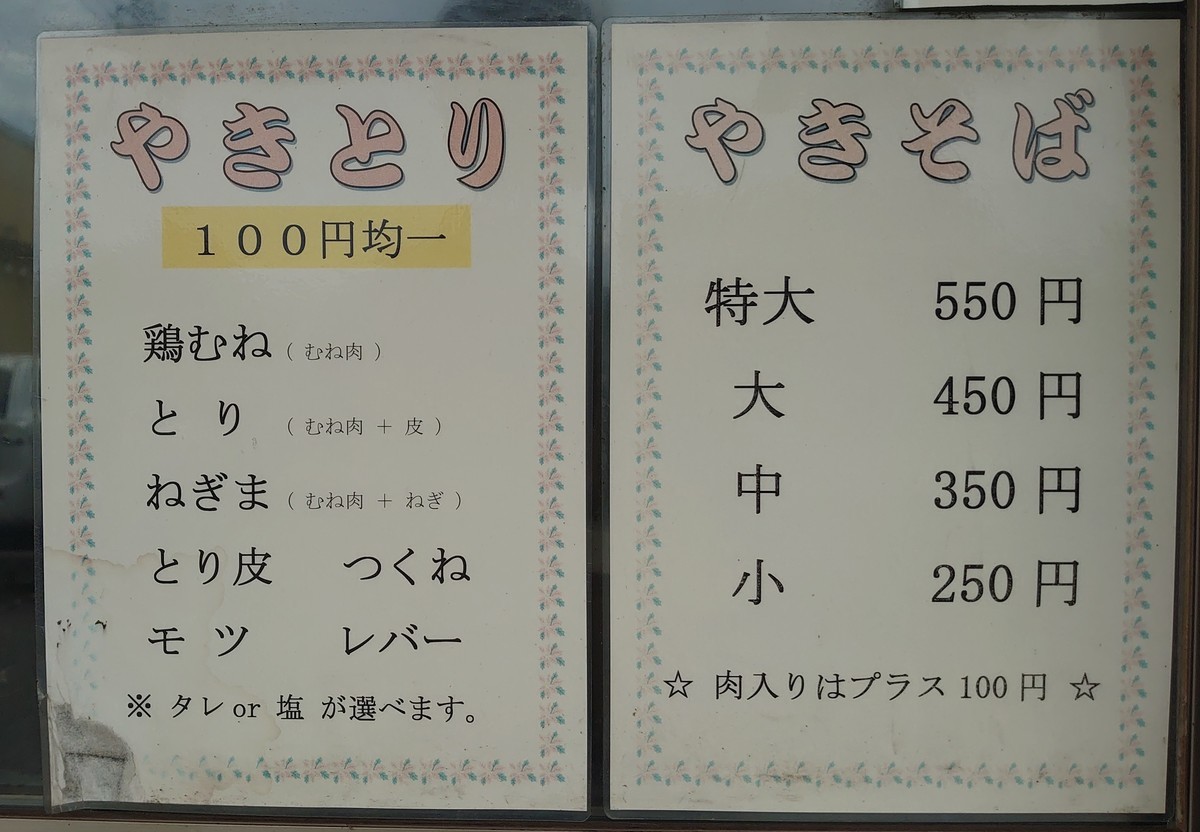 やきとり
１００円均一
鶏むね（ むね肉 ）
と り （ むね肉 ＋ 皮 ）
ねぎま（ むね肉 ＋ ねぎ ）
とり皮 つくね
モ ツ レバー
※ タレ or 塩 が選べます。
やきそば
特大 550 円
大 450 円
中 350 円
小 250 円
☆ 肉入りはプラス 100 円 ☆